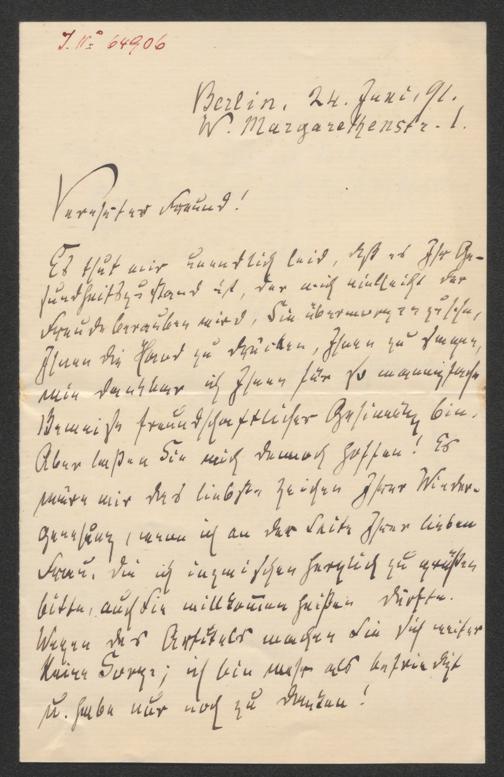 J. No 64906
Berlin, 24. Juni, 91.
W. Margarethenstr. 1.
Verehrter Freund!
Es thut mir unendlich leid, daß es Ihr Ge-
sundheitszustand ist, der mich vielleicht der
Freude berauben wird, Sie übermorgen zu sehen,
Ihnen die Hand zu drücken, Ihnen zu sagen,
wie dankbar ich Ihnen für so mannigfache
Beweise freundschaftlicher Gesinnung bin.
Aber laßen Sie mich dennoch hoffen! Es
wäre mir das liebste Zeichen Ihrer Wieder-
genesung, wenn ich an der Seite Ihrer lieben
Frau, die ich inzwischen herzlich zu grüßen
bitte, auch Sie willkommen heißen dürfte.
Wegen des Artikels machen Sie sich weiter
keine Sorge; ich bin mehr als befriedigt
u. habe nur noch zu danken!